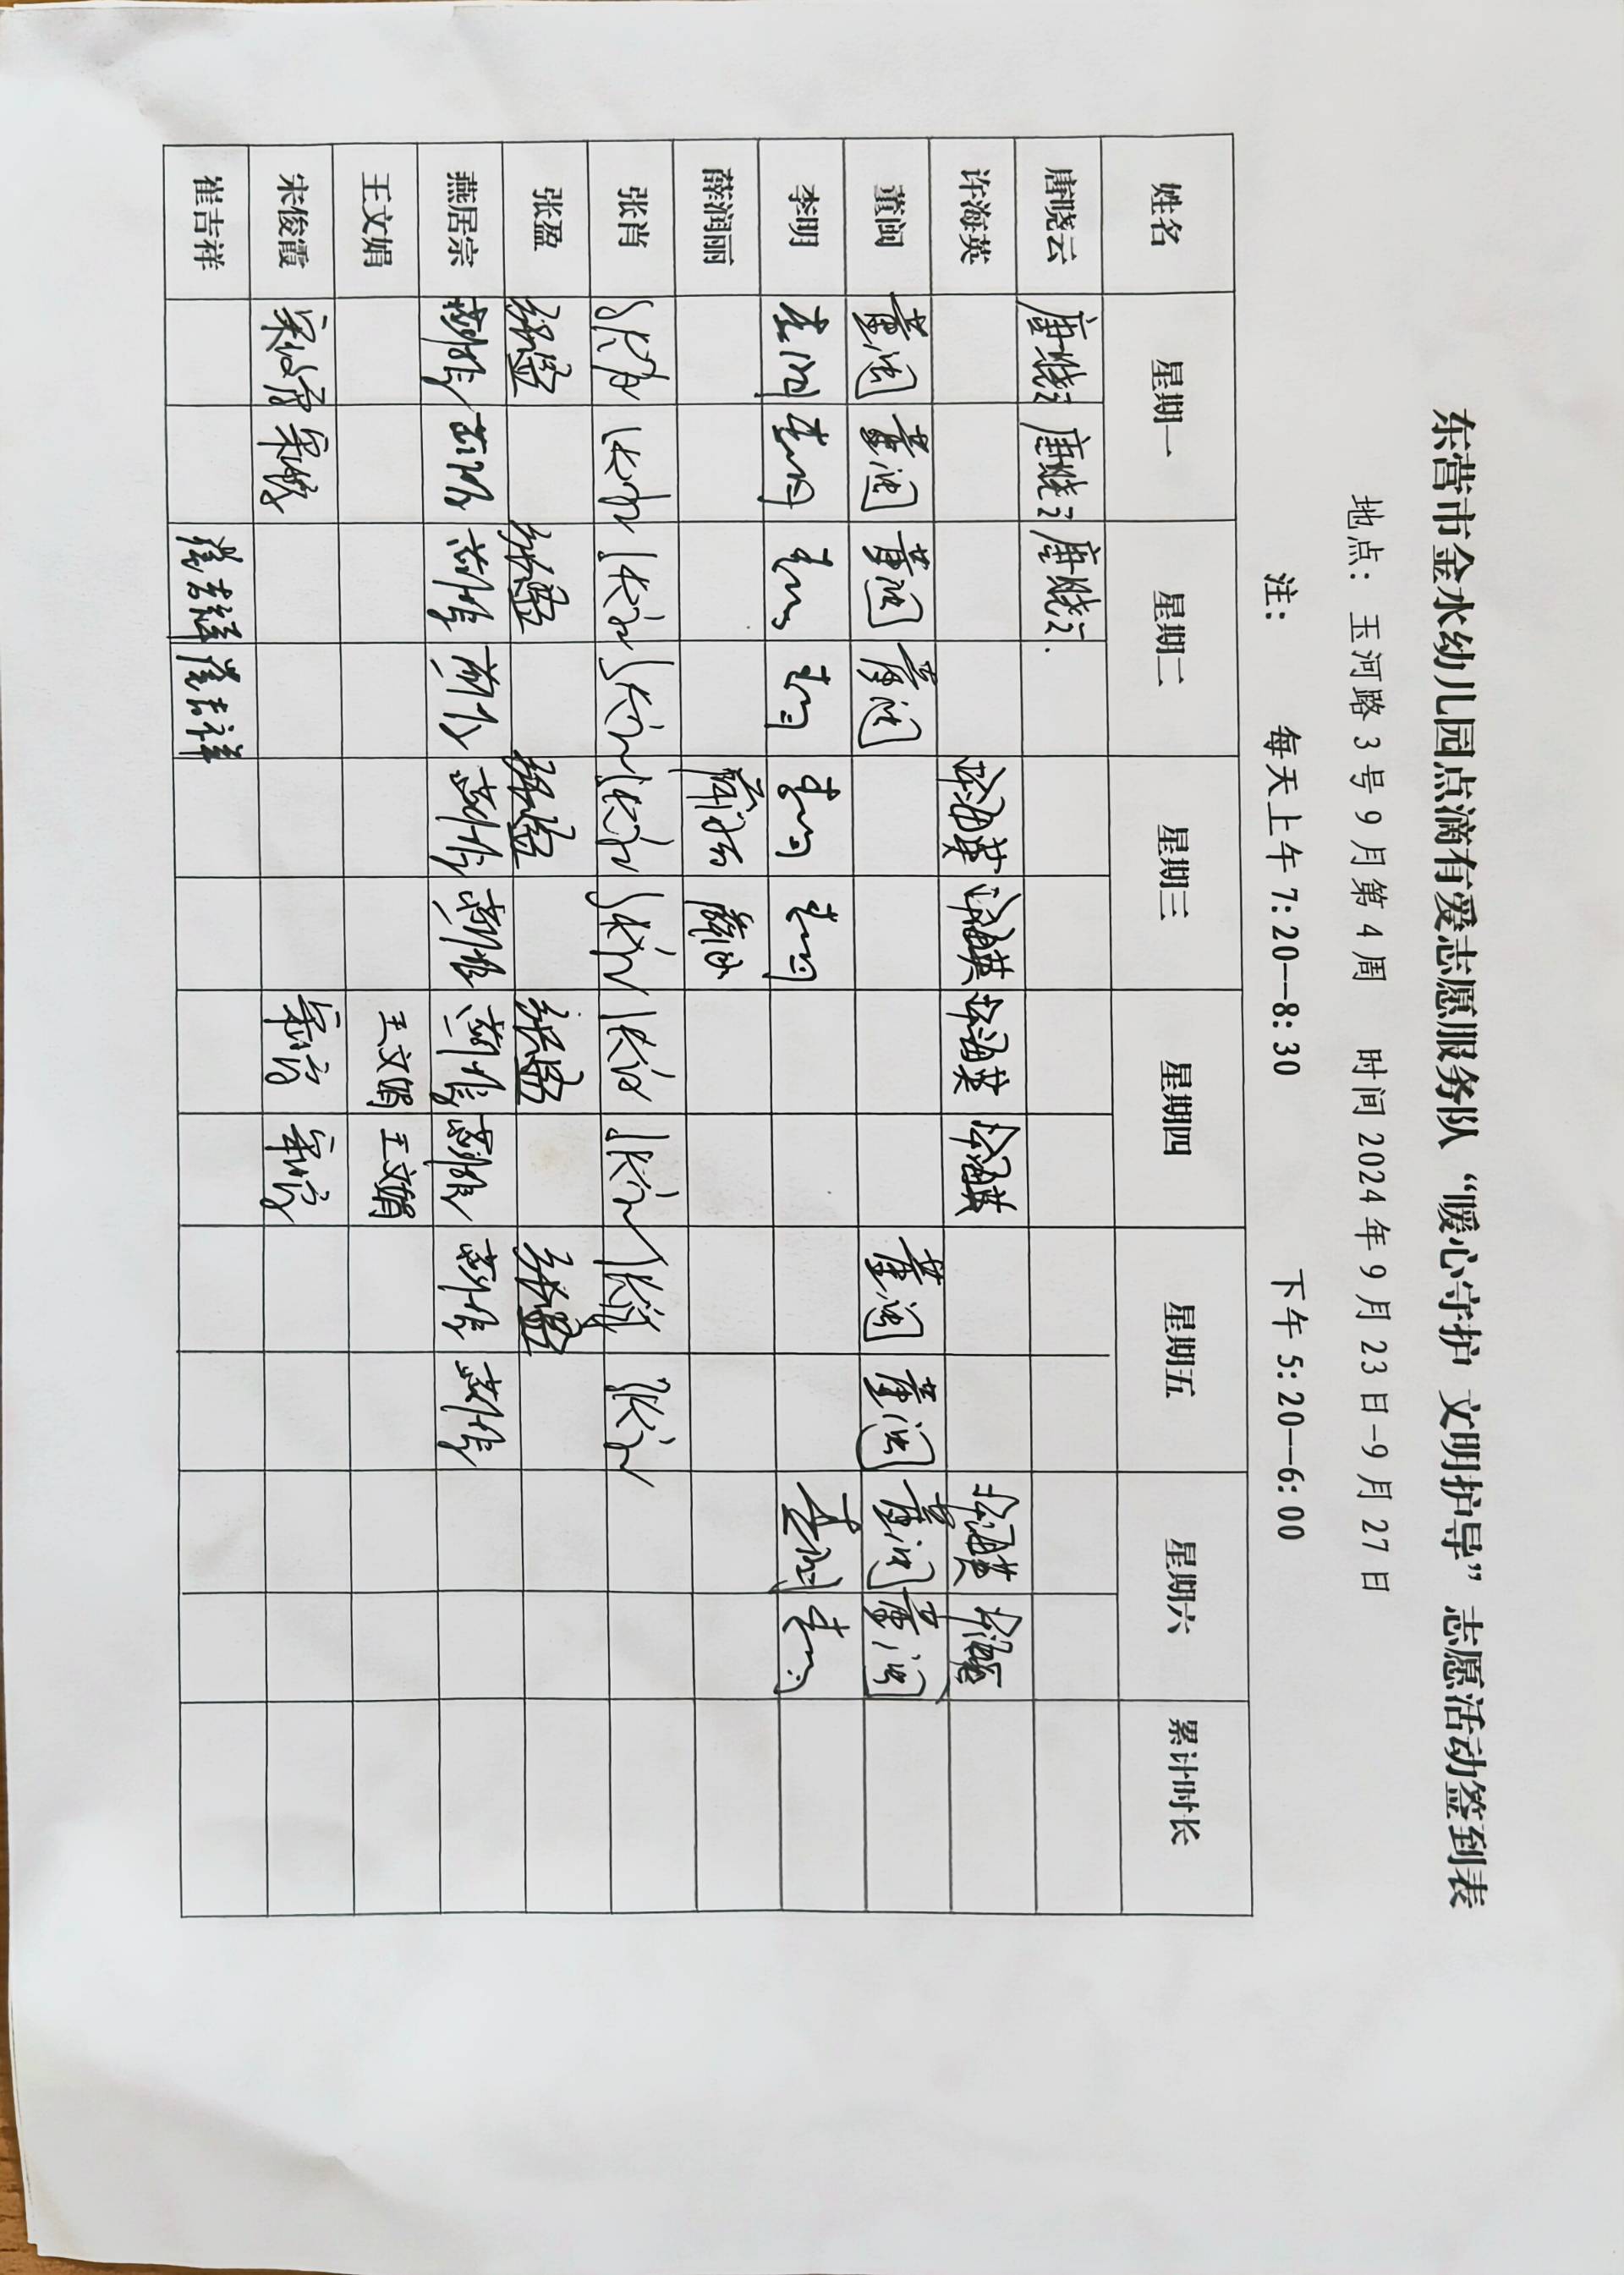 东营市金水幼儿园点滴有爱志愿服务队“暖心守护 文明护导”志愿活动签到表
地点：玉河路3号9月第4周 时间2024年9月23日-9月27日
注： 每天上午7:20—8:30 下午5:20—6:00
姓名 星期一 星期二 星期三 星期四 星期五 星期六 累计时长
唐晓云 唐晓云 唐晓云 唐晓云
许海英 许海英 许海英 许海英 许海英 许海英 许海英
董闽 董闽 董闽 董闽 董闽 董闽 董闽 董闽 董闽
李明 李明 李明 李明 李明 李明 李明 李明 李明
薛润丽
张肖 张肖 张肖 张肖 张肖 张肖 张肖 张肖 张肖 张肖 张肖
张盈 张盈 张盈 张盈 张盈 张盈
燕居宗
王文娟 王文娟 王文娟
宋俊霞 宋俊霞
崔吉祥 崔吉祥 崔吉祥